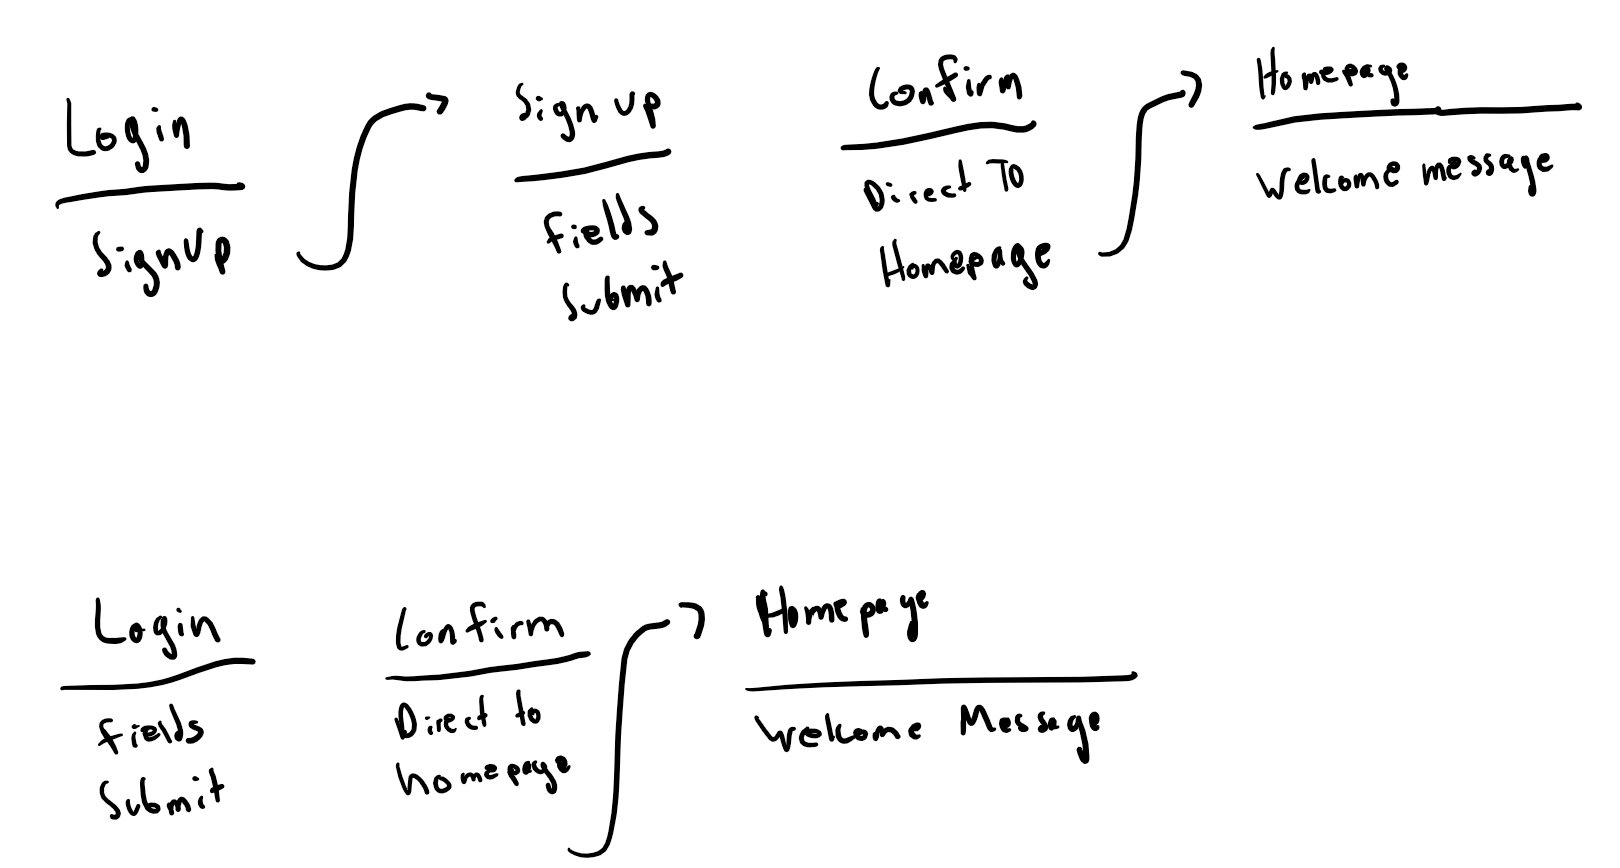 Login
SignUp
Sign up
fields
submit
Confirm
Direct To
Homepage
Homepage
Welcome message
Login
fields
Submit
Confirm
Direct to
homepage
Homepage
Welcome Message